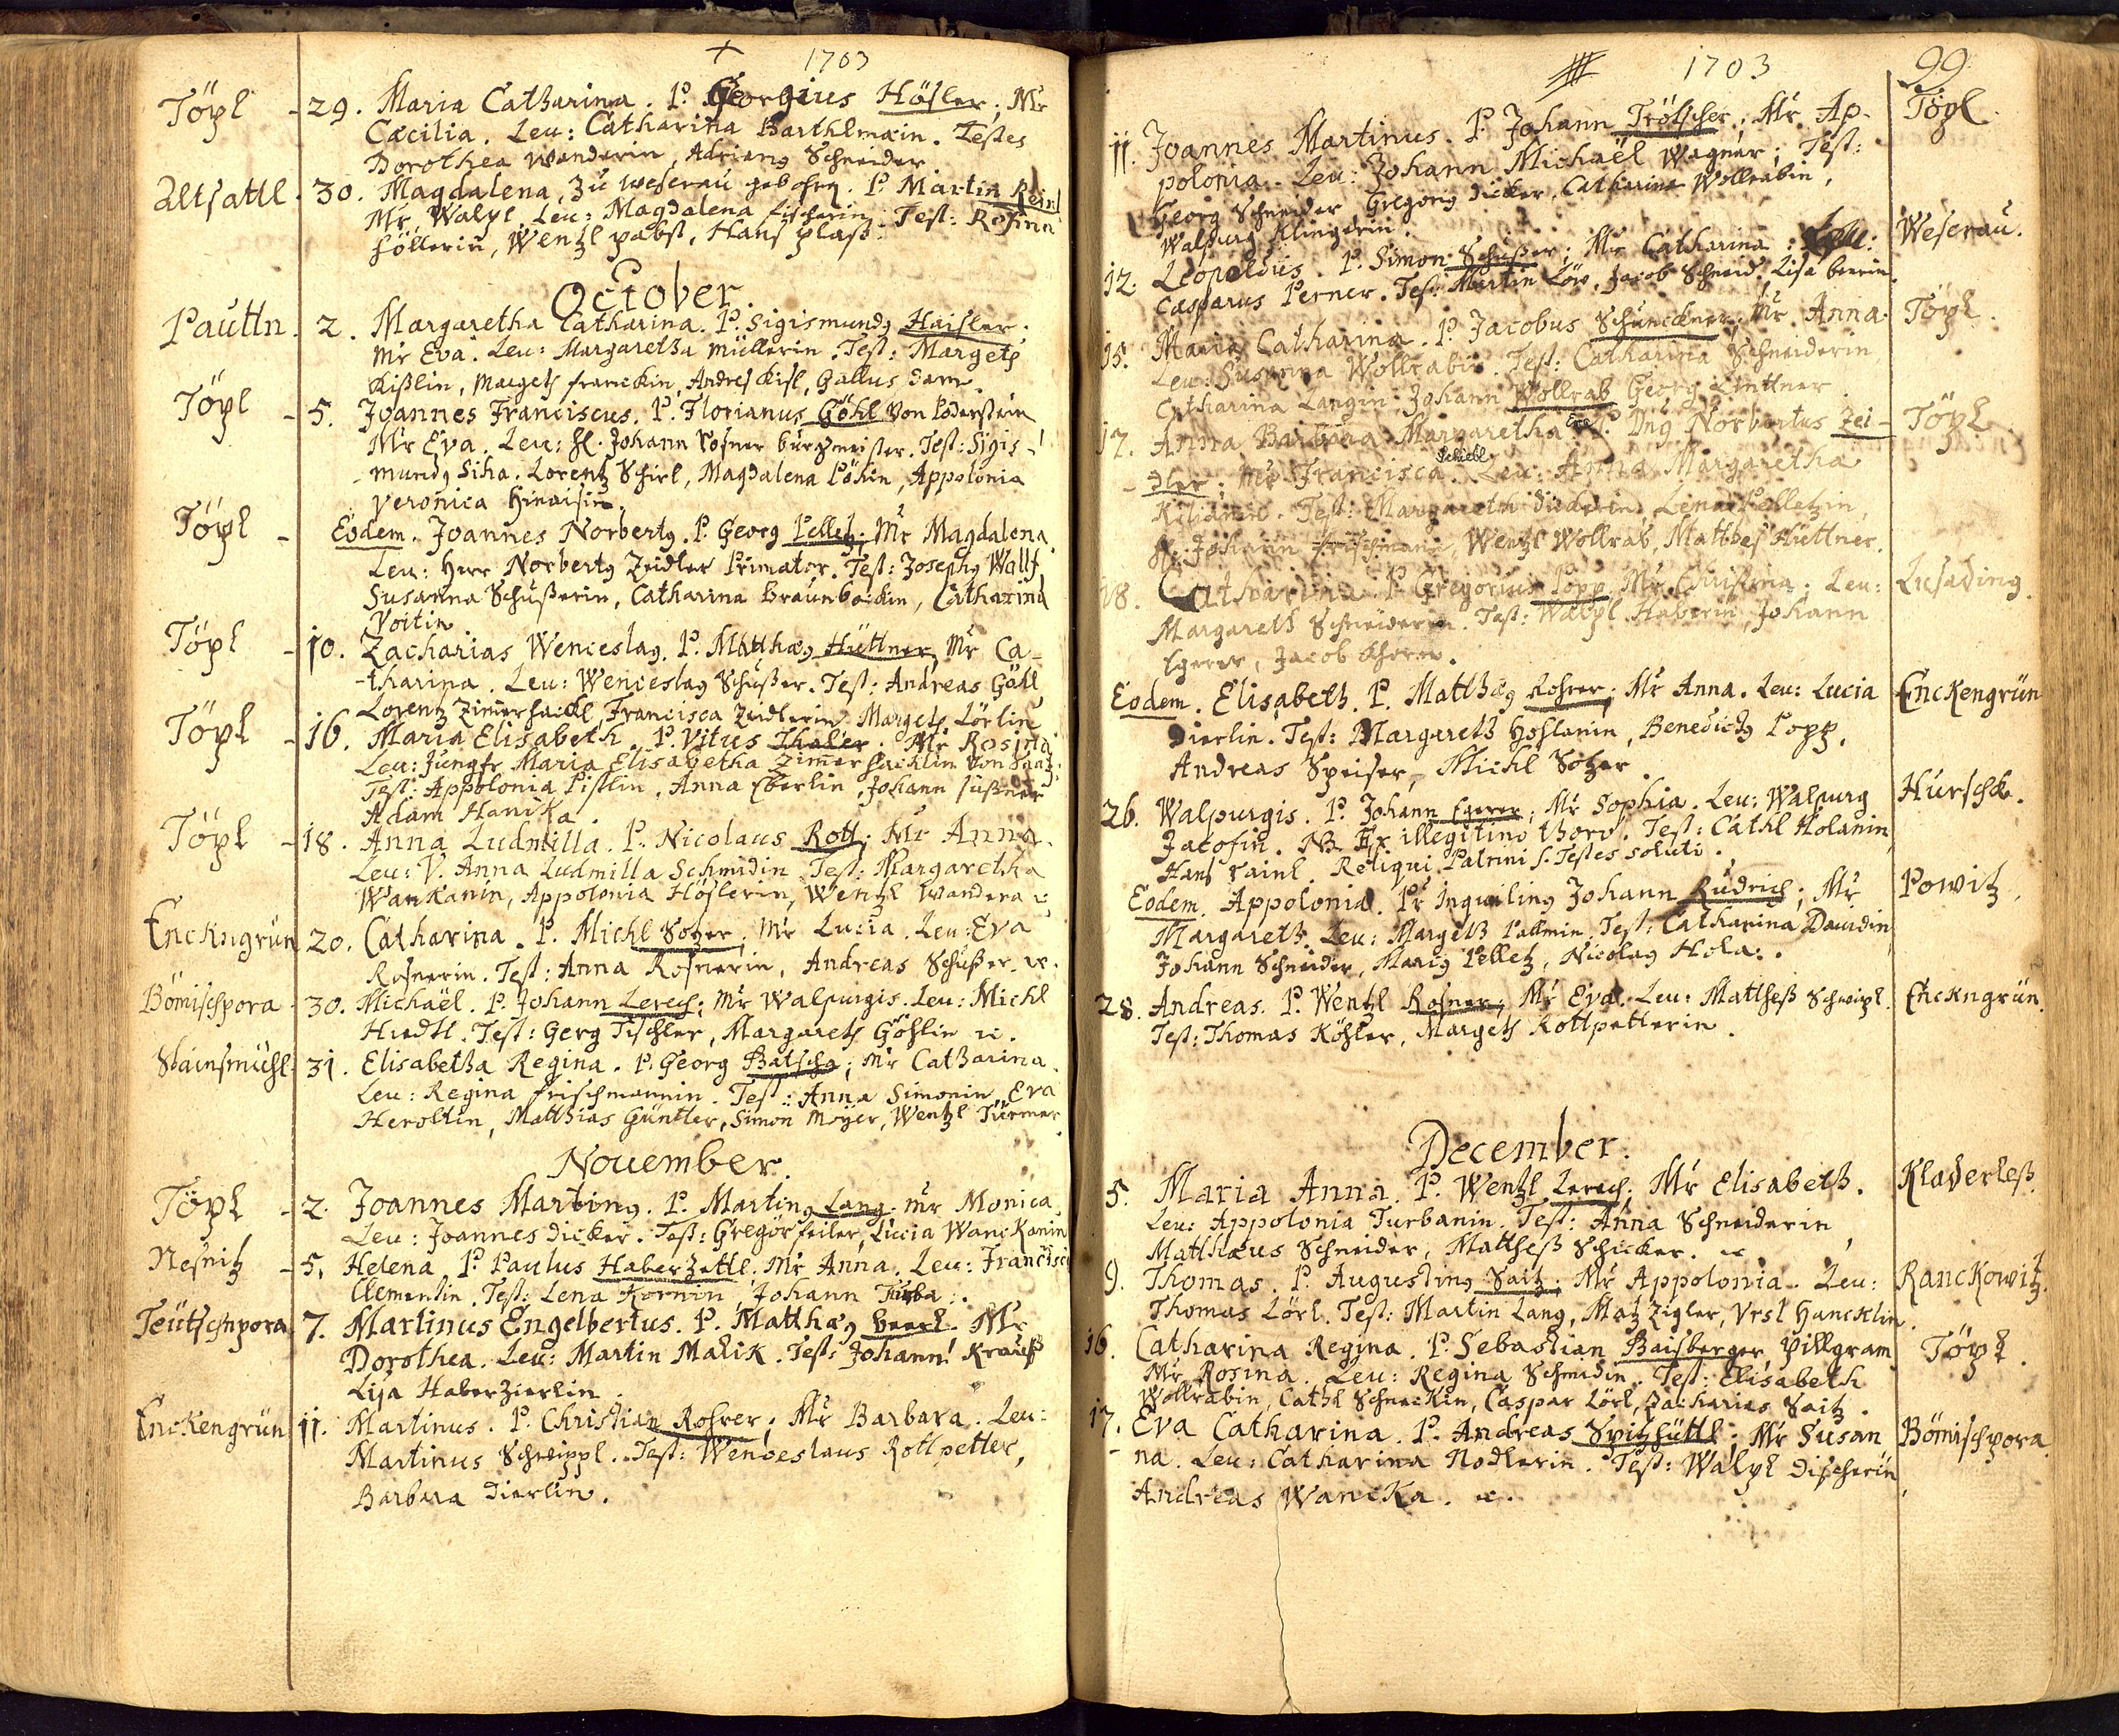 1703
Töpl - 29. Maria Catharina. P. Georgius Hösler; Mr
Cæcilia. Leu: Catharina Barthlmæin. Testes
Dorothea Wanderin, Adrianq Schneider
Altsattl. 30. Magdalena, zu Weserau gebohrn. P. Martin Reinl
Mr Walpl. Leu: Magdalena fischerin. Test: Rosina
Höllerin, Wentzl pabst, Hans plass.
October.
Pauttn. 2. Margaretha Catharina. P. Sigismundq Haisler.
Mr Eva. Leu: Margaretha Müllerin. Test: Margeth
Kißlin, Margeth franckin, Andres Kisl, Gallus
Töpl - 5. Joannes Franciscus. P. Florianus Göhl von
Mr Eva. Leu: H. Johann Rosner burgmeister. Test: Sigis-
mundq Siha. Lorentz Schirl, Magdalena Pöhin, Appolonia
Veronica
Töpl - Eodem. Joannes Norbertq. P. Georg Pelletz; Mr Magdalena
Leu: Herr Norbertq Zeidler Primator. Test: Josephq Wallf
Susanna Schußerin, Catharina Braunbockin, Catharina
Voitin
Töpl - 10. Zacharias Wenceslaq. P. Matthæq Hüttner, Mr Ca-
tharina. Leu: Wenceslaq Schußer. Test: Andreas Göll
Lorentz Zimerhackl, Francisca Zeidlerin Margeth Lörlin
Töpl - 16. Maria Elisabeth. P. Vitus Thaler. Mr Rosina
Leu: Jungfr Maria Elisabetha Zimerhacklin von
Test: Appolonia Pistlin, Anna Eberlin, Johann
Adam Hanika.
Töpl - 18. Anna Ludmilla. P. Nicolaus Rott; Mr Anna.
Leu: V. Anna Ludmilla Schmidin. Test: Margaretha
WanKanin, Appolonia Höslerin, Wentzl Wandera
Enckngrün 20. Catharina. P. Michl Sotzer; Mr Lucia. Leu: Eva
Rosnerin. Test: Anna Rosnerin, Andreas Schußer.
Bömischpora 30. Michaël. P. Johann Lerech; Mr Walpurgis. Leu: Michl
Hiedtl. Test: Gerg Tischler, Margareth Göhlin
Stainsmühl. 31. Elisabetha Regina. P. Georg Batscha; Mr Catharina.
Leu: Regina frischmannin. Test: Anna Simonin, Eva
Heroltin, Matthias Güntter, Simon Mayer, Wentzl Türmer.
November
Töpl - 2. Joannes Martinq. P. Martinq Lang. Mr Monica.
Leu: Joannes Dicker. Test: Gregor feiler, Lucia Wanckanin
Nesnitz - 5. Helena P. Paulus Haberzettl. Mr Anna. Leu: Francisca
Clementin. Test: Lena Kornin, Johann Turba.
Teütschpora 7. Martinus Engelbertus. P. Matthæq Beerl. Mr
Dorothea. Leu: Martin Malik. Test: Johann Krauß
Lisa Haberzierlin.
Enckengrün 11. Martinus. P. Christian Rohrer; Mr Barbara. Leu:
Martinus Schweippl. Test: Wenceslaus Rottpetter,
Barbara Dierlin.
1703 99
11. Joannes Martinus. P. Johann Trötscher; Mr Ap- Töpl
polonia. Leu: Johann Michaël Wagner; Test:
Georg Schneider Gregorq Dicker, Catharina Wollrabin,
Walpurg Klingerin.
12. Leopoldus. P. Simon Schußer; Mr Catharina; Leu: Weserau.
Casparus Perner. Test: Martin Löw, Jacob Schneid. Lisa beerin
15. Maria Catharina. P. Jacobus Schunckner; Mr Anna. Töpl.
Leu: Susanna Wollrabin. Test: Catharina Schneiderin,
Catharina Langin, Johann Wollrab Georg Linttner
17. Anna Barbara Margaretha P. Dnq Norbertus Zei- Töpl.
dler; Mr Francisca. Leu: Anna Margaretha
Kilianin. Test: Margareth Dickerin, Lena Pelletzin,
H. Johann frischmann, Wentzl Wollrab, Matthes Hüttner.
18. Catharina. P. Gregorius Popp. Mr Christina. Leu: Lusading
Margareth Schneiderin. Test: Walpl Haberin, Johann
Egerer, Jacob
Eodem. Elisabeth. P. Matthæq Rohrer; Mr Anna. Leu: Lucia Enckengrün
Dierlin. Test: Margareth Hoflanin, Benedictq Popp,
Andreas Speiser, Michl Sotzer
26. Walpurgis. P. Johann Egerer; Mr Sophia. Leu: Walpurg Hurschk.
Jacobin. NB. Ex illegitimo thoro. Test: Cathl Holanin,
Hans Painl. Reliqui Patrini s. Testes soluti.
Eodem. Appolonia. Pr Inquilinq Johann Rudrich; Mr Powitz,
Margareth. Leu: Margeth Pallmin. Test: Catharina Dauidin
Johann Schneider, Maricq Pelletz, Nicolaq Hola.
28. Andreas. P. Wentzl Rosner; Mr Eva. Leu: Mattheß Schweipl. Enckngrün.
Test: Thomas Köhler, Margeth Rottpetterin.
December.
5. Maria Anna. P. Wentzl Lerech; Mr Elisabeth. Kladerleß.
Leu: Appolonia Turbanin. Test: Anna Schneiderin,
Matthæus Schneider, Mattheß Schicker.
9. Thomas. P. Augustinq Saitz; Mr Appolonia. Leu: Ranckowitz.
Thomas Lörl. Test: Martin Lang, Matz Zigler, Vrsl Hancklin.
16. Catharina Regina. P. Sebastian Baisberger pillgram Töpl.
Mr Rosina. Leu: Regina Schmidin. Test: Elisabeth
Wollrabin, Cathl Schneckin, Caspar Lörl, Zacharias Saitz.
17. Eva Catharina. P. Andreas Spitzhüttl; Mr Susan Bömischpora
na. Leu: Catharina Nodlerin. Test: Walpl Discherin,
Andreas Wancka.